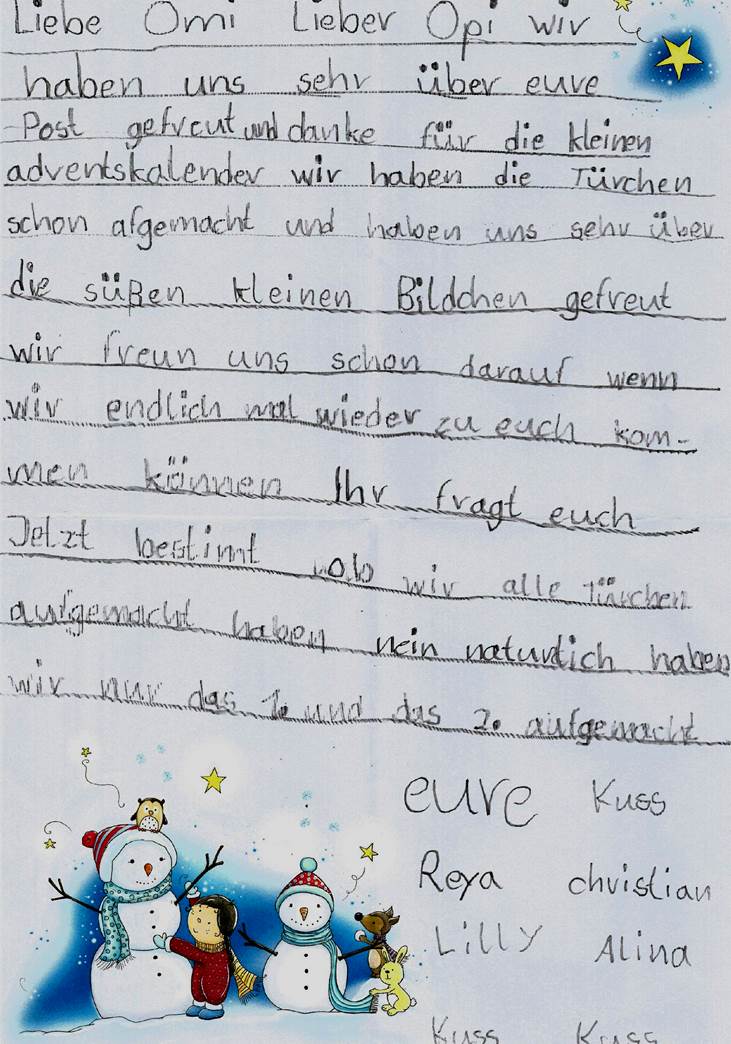 Liebe Omi Lieber Opi wir
haben uns sehr über eure
Post gefreut und danke für die kleinen
adventskalender wir haben die Türchen
schon afgemacht und haben uns sehr über
die süßen kleinen Bildchen gefreut
wir freun uns schon darauf wenn
wir endlich mal wieder zu euch kom-
men können Ihr fragt euch
Jetzt bestimt ob wir alle Türchen
aufgemacht haben nein naturlich haben
wir nur das 1. und das 2. aufgemacht
eure Kuss
Reya christian
Lilly Alina
Kuss Kuss